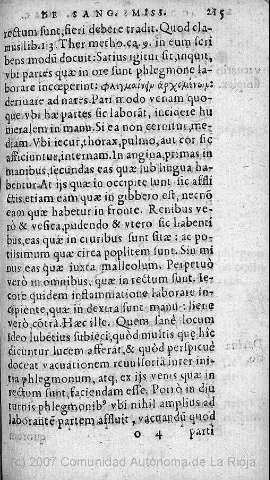 DE SANG. MISS. 215
rectum sunt, fieri debere tradit. Quod cla-
mus lib. 13. Ther metho. ca. 9. in eum scri
bens modū docuit: Satius igitur sit, inquit,
vbi partes quæ in ore sunt phlegmone la-
borare incœperint: φλεγμαίνην ἀρχομένων:
deriuare ad nares. Pari modo venam quo-
que vbi hæ partes sic laborāt, incidere hu
meralem in manu. Si ea non cernitur, me-
diam. Vbi iecur, thorax, pulmo, aut cor sic
afficiuntur, internam. In angina, primas in
manibus, secundas eas quæ sub lingua ha-
bentur. At ijs quæ in occipite sunt sic affli
ctis, etiam eam quæ in gibbero est, necnō
eam quæ habetur in fronte. Renibus ve-
rò & vesica, pudendo & vtero sic habenti
bus, eas quæ in cruribus sunt sitæ: ac po-
tissimum quæ circa poplitem sunt. Sin mi
nus eas quæ iuxta malleolum. Perpetuò
verò in omnibus, quæ in rectum sunt. Ie-
core quidem inflammatione laborare in-
cipiente, quæ in dextra sunt manu: liene
verò, cōtrà. Hæc ille. Quem sanè locum
ideo lubētius subieci, quòd multis quę hic
dicuntur lucem afferat, & quòd perspicuè
doceat vacuationem reuulsoriā inter ini-
tia phlegmonum, atq, ex ijs venis quæ in
rectum sunt, faciendam esse. Porrò in diu
turnis phlegmonib⁹ vbi nihil amplius ad
laborantē partem affluit, vacuandū quod
O 4 parti
(c) 2007 Comunidad Autónoma de La Rioja